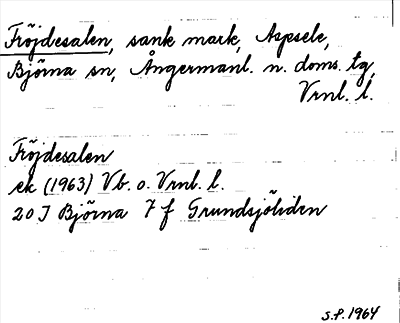 Fröjdesalen, sank mark, Aspsele,
Björna sn, Ångermanl. n. doms. tg,
Vrnl. l.
Fröjdesalen
ek (1963) Vb. o. Vrnl. l.
20 J Björna 7 f Grundsjöliden
S.P. 1964